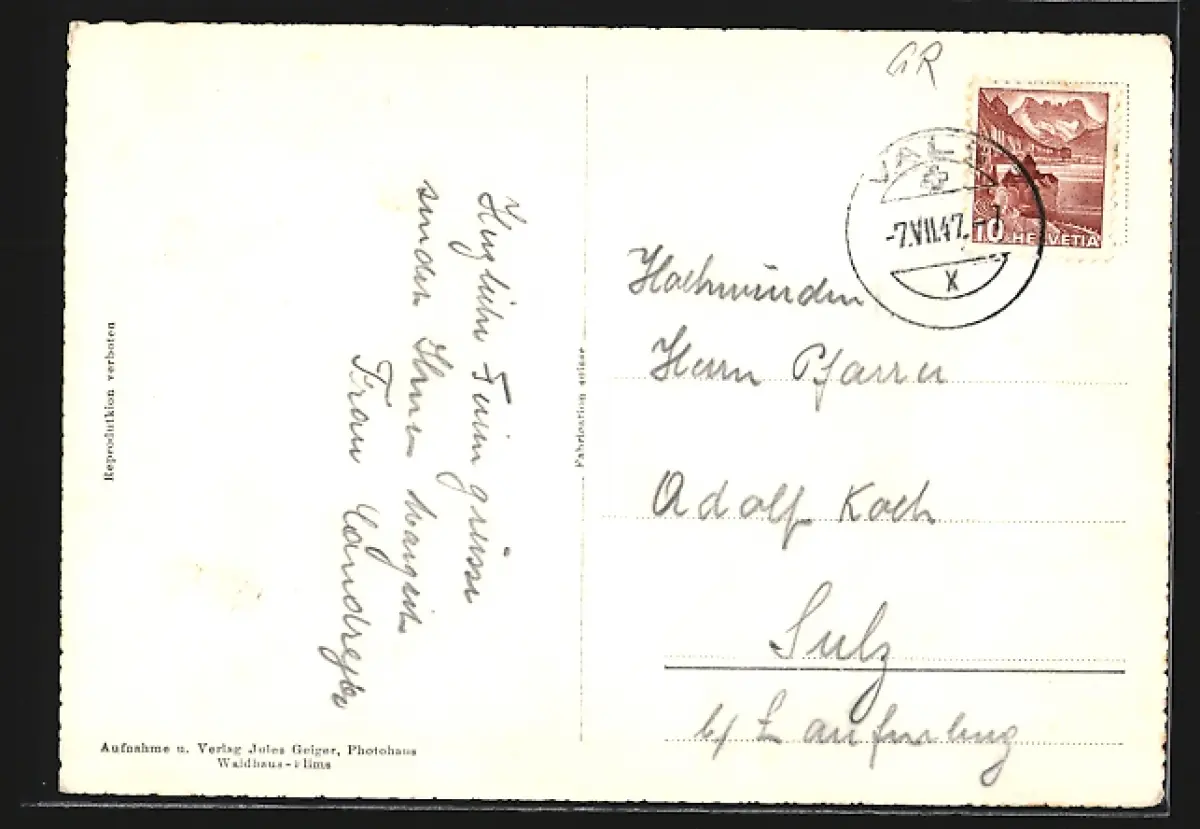 GR
VALS
-7.VII.47.-7
X
10 HELVETIA
Herzliche Feriengrüsse
sendet Ihnen Margrith
Frau Candreja
Hochwürden
Herrn Pfarrer
Adolf Koch
Sulz
b/ Laufenburg
Reproduktion verboten
Fabrication suisse
Aufnahme u. Verlag Jules Geiger, Photohaus
Waldhaus-Flims